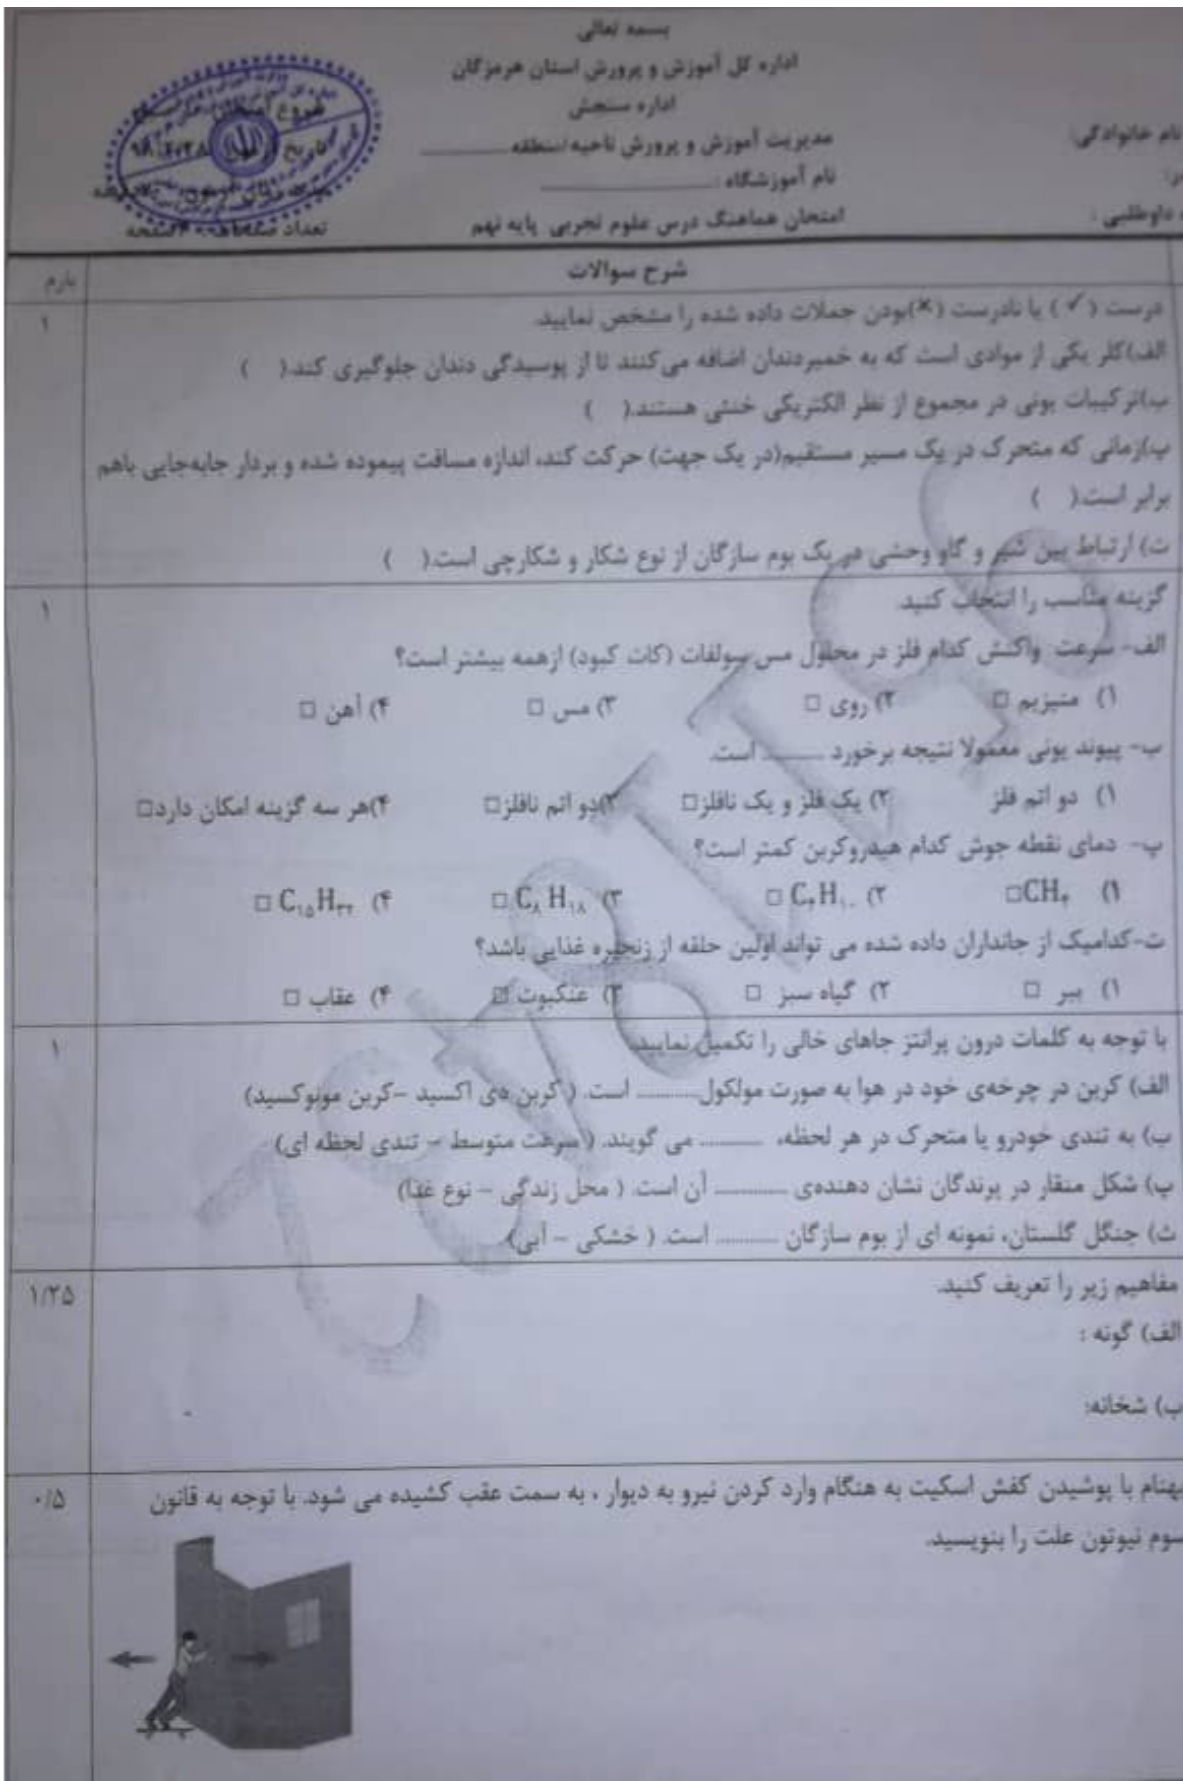 بسمه تعالی
اداره کل آموزش و پرورش استان هرمزگان
اداره سنجش
مدیریت آموزش و پرورش ناحیه/منطقه
نام خانوادگی:
نام آموزشگاه:
امتحان هماهنگ درس علوم تجربی پایه نهم
داوطلبی:
شروع
تاریخ
تعداد
شرح سوالات
بارم
درست (✓) یا نادرست (×)بودن جملات داده شده را مشخص نمایید.
۱
الف)کلر یکی از موادی است که به خمیردندان اضافه می‌کنند تا از پوسیدگی دندان جلوگیری کند.( )
ب)ترکیبات یونی در مجموع از نظر الکتریکی خنثی هستند.( )
پ)زمانی که متحرک در یک مسیر مستقیم(در یک جهت) حرکت کند، اندازه مسافت پیموده شده و بردار جابه‌جایی باهم
برابر است.( )
ت) ارتباط بین شیر و گاو وحشی در یک بوم سازگان از نوع شکار و شکارچی است.( )
گزینه مناسب را انتخاب کنید.
۱
الف- سرعت واکنش کدام فلز در محلول مس سولفات (کات کبود) ازهمه بیشتر است؟
۱) منیزیم □ ۲) روی □ ۳) مس □ ۴) آهن □
ب- پیوند یونی معمولا نتیجه برخورد ........ است.
۱) دو اتم فلز ۲) یک فلز و یک نافلز□ ۳)دو اتم نافلز□ ۴)هر سه گزینه امکان دارد□
پ- دمای نقطه جوش کدام هیدروکربن کمتر است؟
۱) CH₄□ ۲) C₄H₁₀ □ ۳) C₈H₁₈ □ ۴) C₁₅H₃₂ □
ت-کدامیک از جانداران داده شده می تواند اولین حلقه از زنجیره غذایی باشد؟
۱) ببر □ ۲) گیاه سبز □ ۳) عنکبوت □ ۴) عقاب □
با توجه به کلمات درون پرانتز جاهای خالی را تکمیل نمایید.
۱
الف) کربن در چرخه‌ی خود در هوا به صورت مولکول........ است. ( کربن دی اکسید -کربن مونوکسید)
ب) به تندی خودرو یا متحرک در هر لحظه، ........ می گویند. ( سرعت متوسط - تندی لحظه ای)
پ) شکل منقار در پرندگان نشان دهنده‌ی ........ آن است. ( محل زندگی - نوع غذا)
ث) جنگل گلستان، نمونه ای از بوم سازگان ........ است. ( خشکی - آبی)
مفاهیم زیر را تعریف کنید.
۱/۲۵
الف) گونه :
ب) شخانه:
بهنام با پوشیدن کفش اسکیت به هنگام وارد کردن نیرو به دیوار ، به سمت عقب کشیده می شود. با توجه به قانون
۰/۵
سوم نیوتون علت را بنویسید.